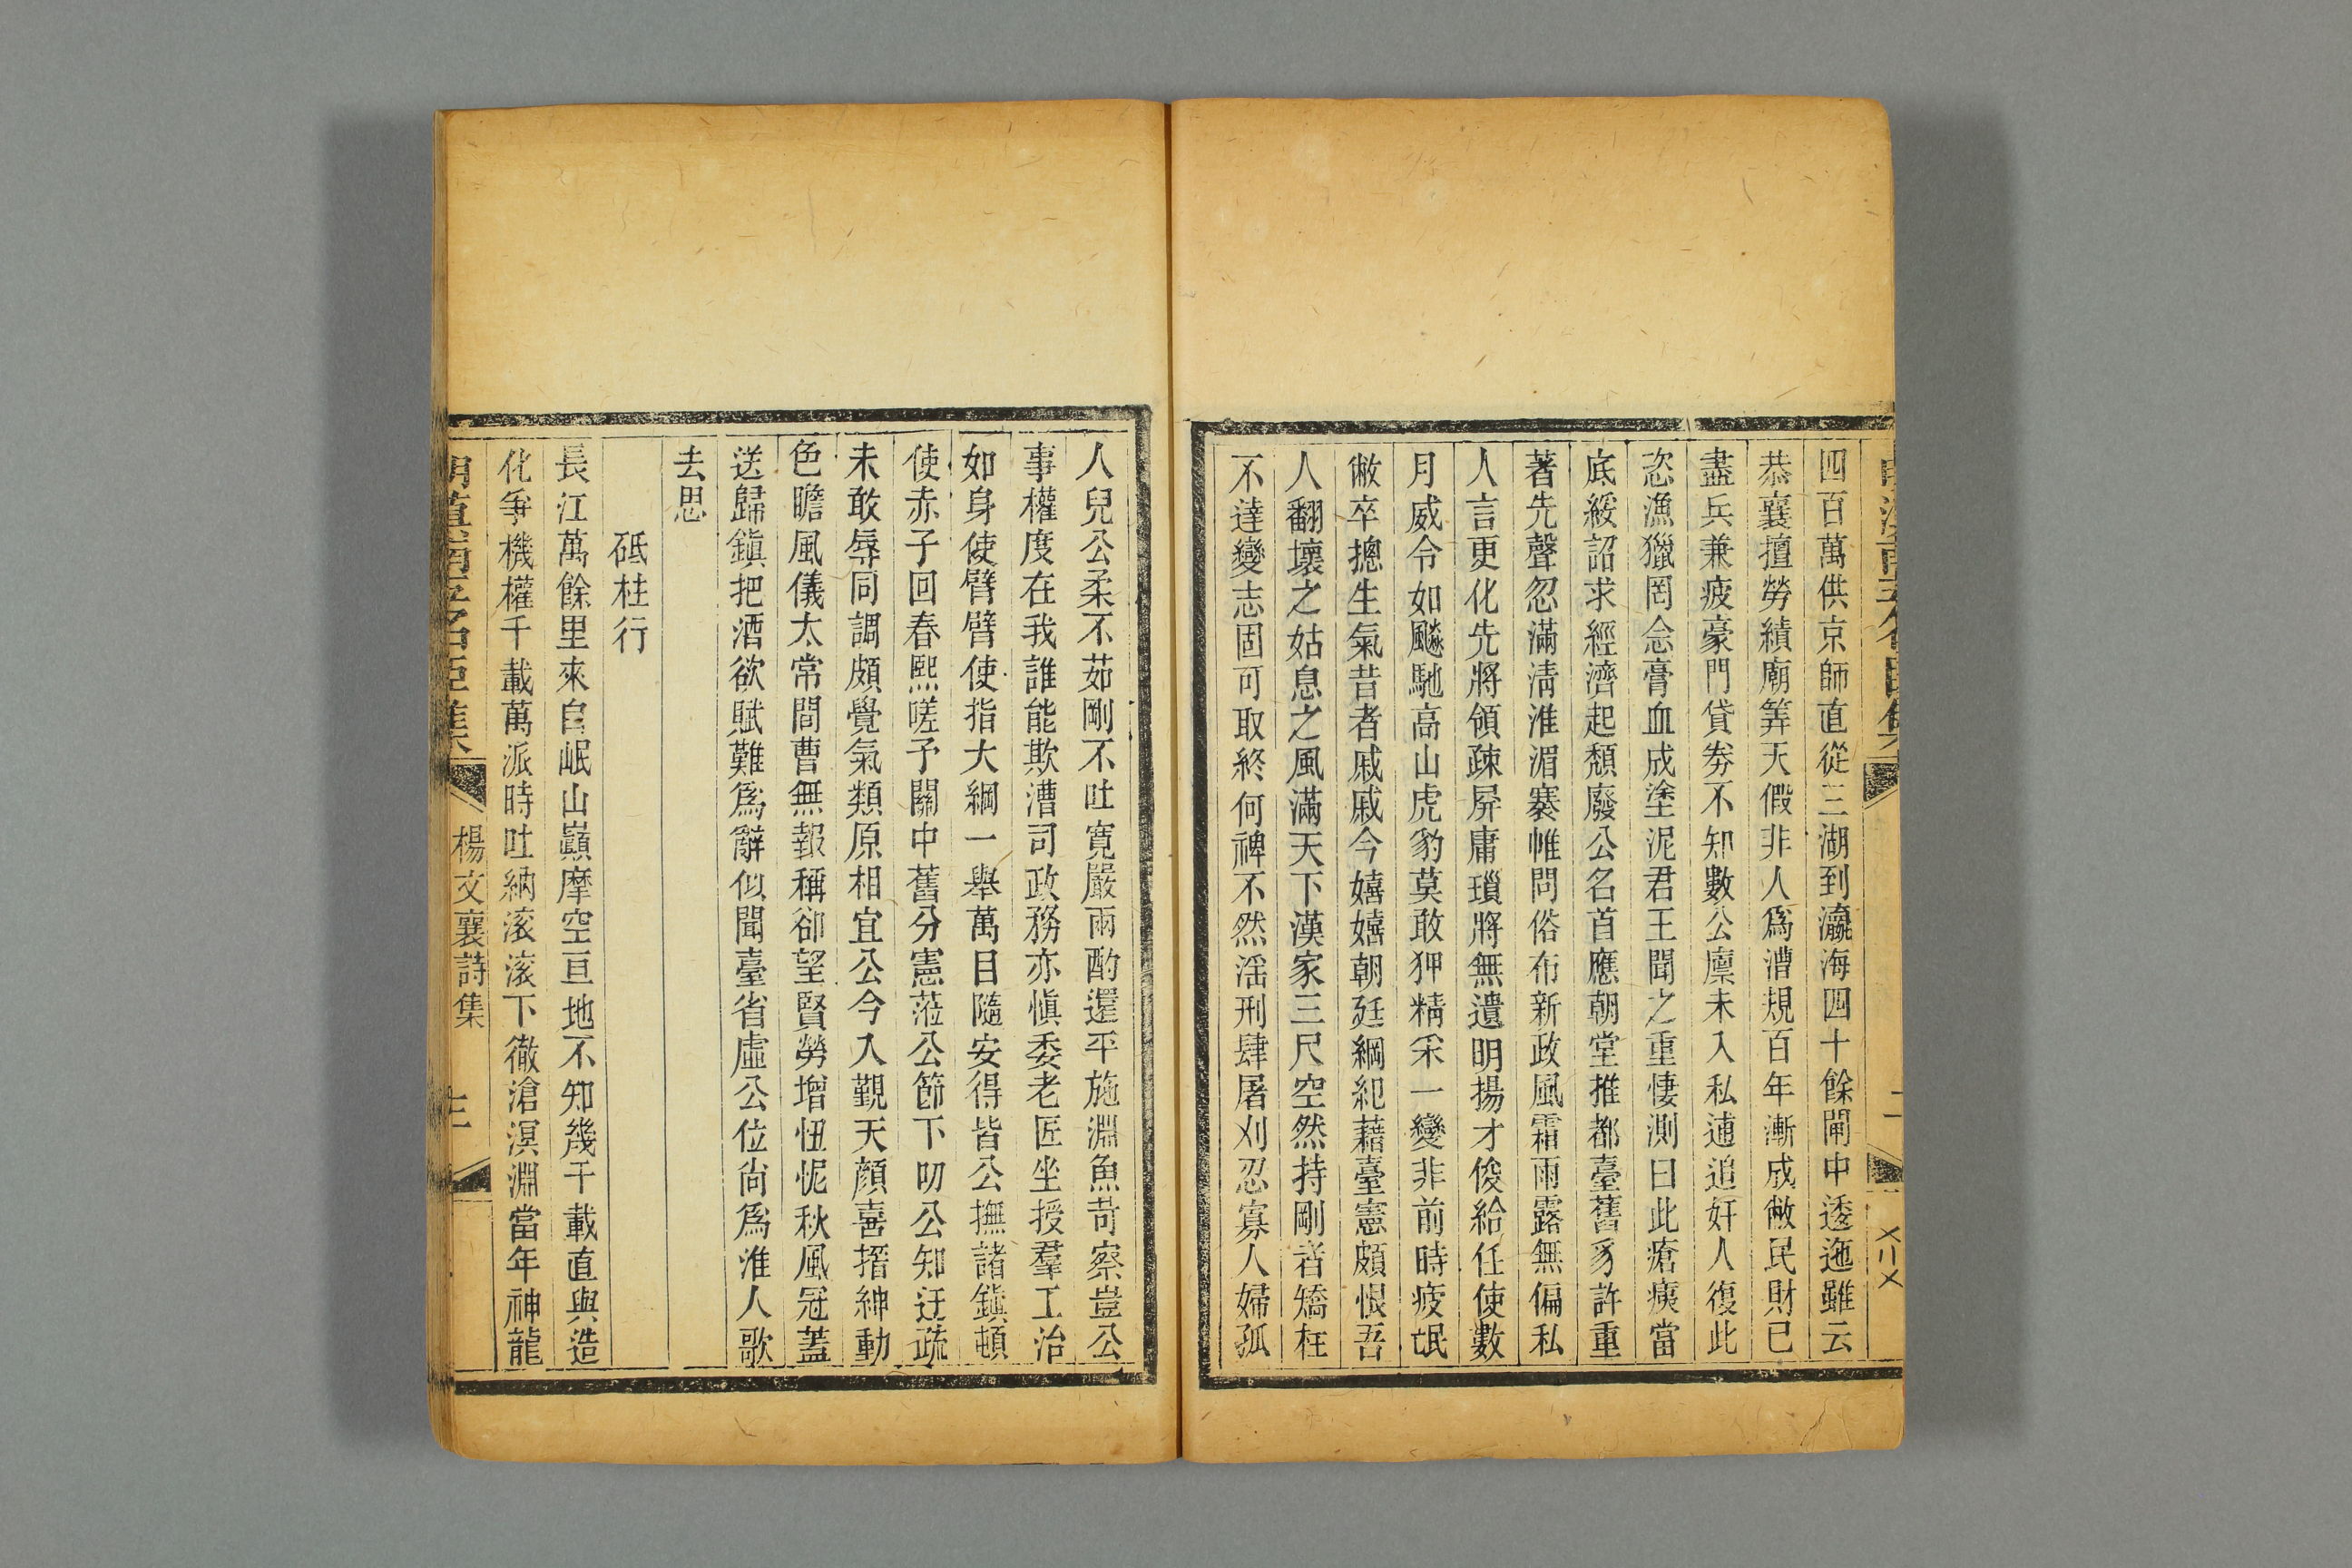 四百萬供京師直從三湖到瀛海四十餘閘中逶迤雖云
恭襄擅勞績廟筭天假非人爲漕規百年漸成敝民財已
盡兵兼疲豪門貸劵不知數公廪未入私逋追奸人復此
恣漁獵罔念膏血成塗泥君王聞之重悽測曰此瘡痍當
底綏詔求經濟起頽廢公名首應朝堂推都臺舊豸許重
著先聲忽滿淸淮湄褰帷問俗布新政風霜雨露無偏私
人言更化先將領疎屏庸瑣將無遺明揚才俊給任使數
月威令如飈馳高山虎豹莫敢狎精采一變非前時疲氓
敝卒摠生氣昔者戚戚今嬉嬉朝廷綱紀藉臺憲頗恨吾
人翻壞之姑息之風滿天下漢家三尺空然持剛者矯枉
不達變志固可取終何裨不然淫刑肆屠刈忍寡人婦孤
人兒公柔不茹剛不吐寬嚴兩酌還平施淵魚苛察豈公
事權度在我誰能欺漕司政務亦愼委老匠坐授羣工治
如身使臂臂使指大綱一舉萬目隨安得皆公撫諸鎭頓
使赤子回春熙嗟予關中舊分憲蒞公節下叨公知迂疏
未敢辱同調頗覺氣類原相宜公今入覲天顔喜搢紳動
色瞻風儀太常間曹無報稱卻望賢勞增忸怩秋風冠蓋
送歸鎭把酒欲賦難爲辭似聞臺省虛公位尙爲淮人歌
去思
砥柱行
長江萬餘里來自岷山巔摩空亘地不知幾千載直與造
化爭機權千載萬派時吐納滚滚下徹滄溟淵當年神龍
楊文襄詩集